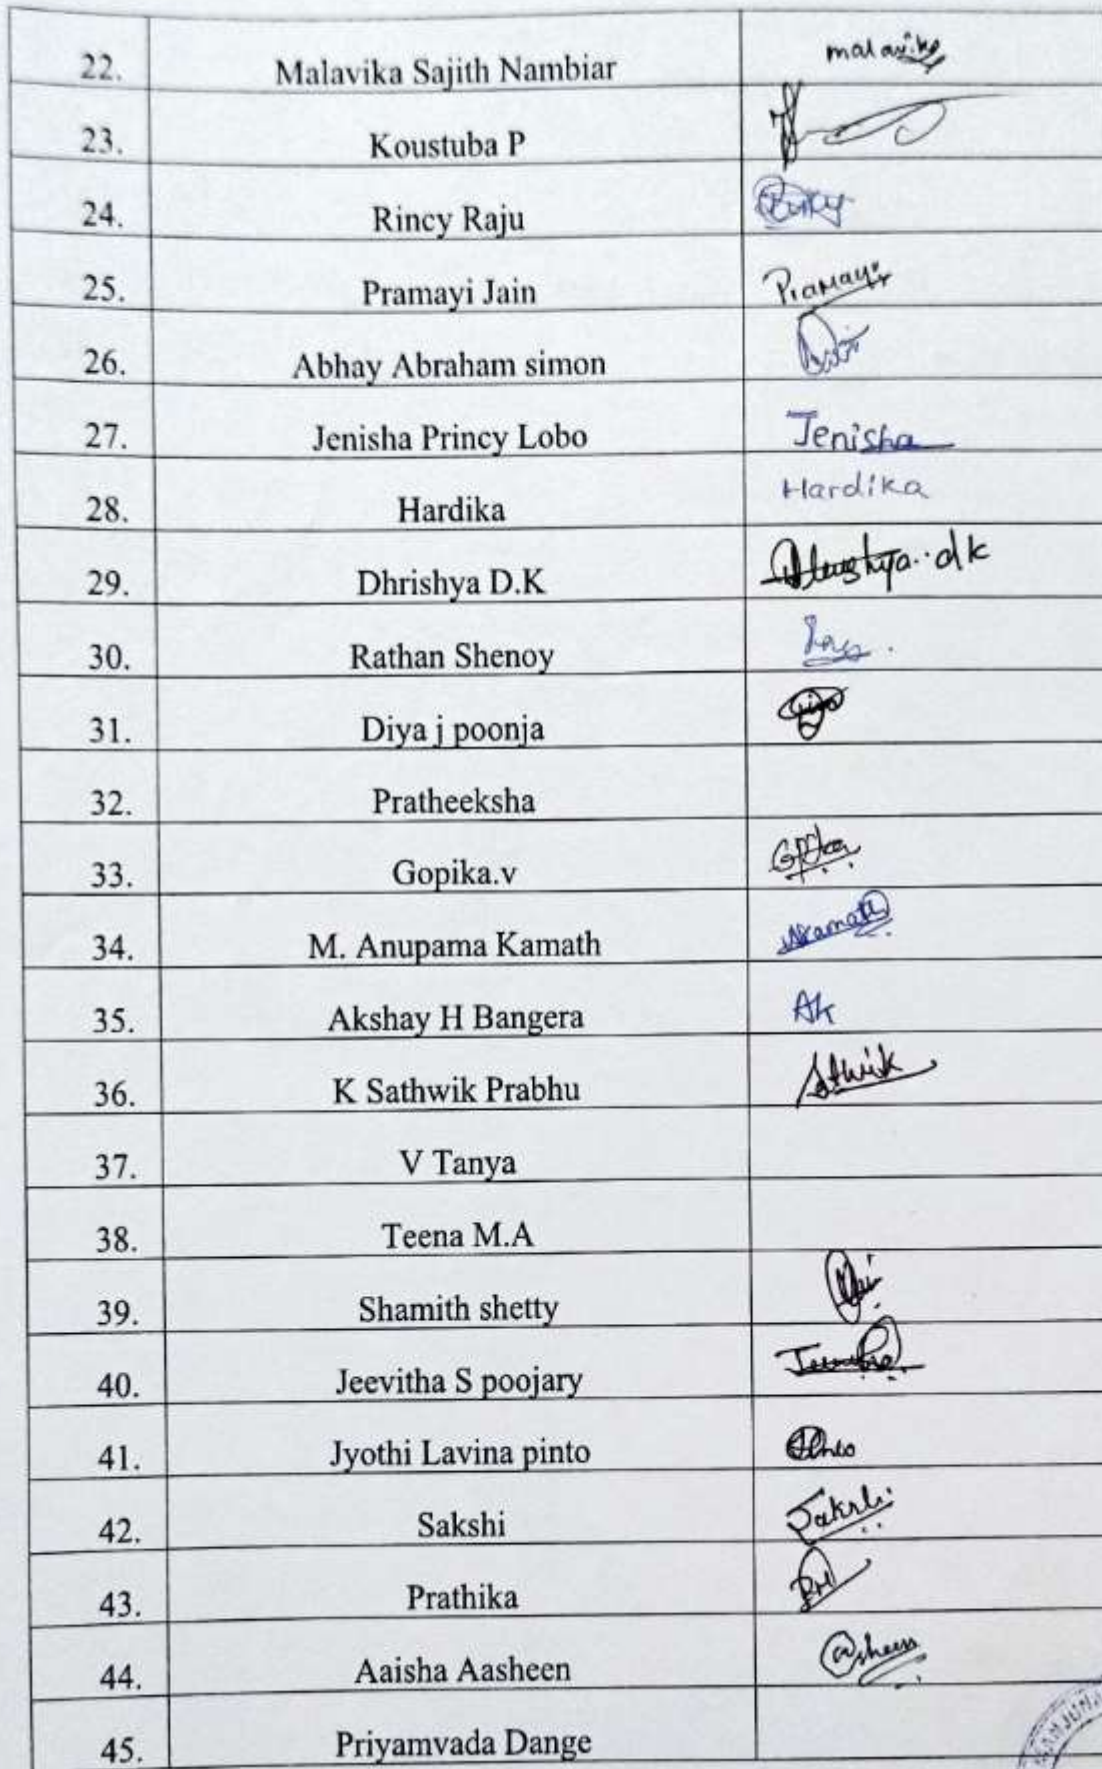 22. Malavika Sajith Nambiar malavika
23. Koustuba P
24. Rincy Raju
25. Pramayi Jain Pramayi
26. Abhay Abraham simon
27. Jenisha Princy Lobo Jenisha
28. Hardika Hardika
29. Dhrishya D.K dk
30. Rathan Shenoy
31. Diya j poonja
32. Pratheeksha
33. Gopika.v
34. M. Anupama Kamath
35. Akshay H Bangera Ak
36. K Sathwik Prabhu Sathwik
37. V Tanya
38. Teena M.A
39. Shamith shetty
40. Jeevitha S poojary
41. Jyothi Lavina pinto
42. Sakshi Sakshi
43. Prathika
44. Aaisha Aasheen
45. Priyamvada Dange